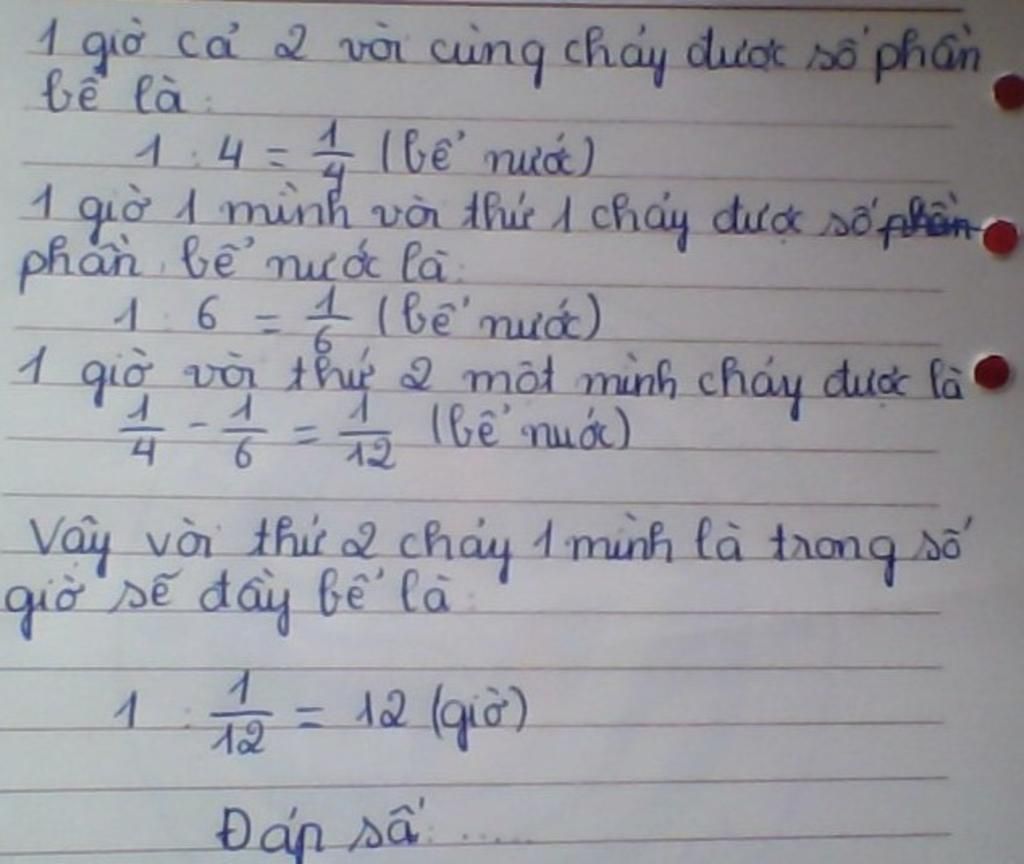 1 giờ cả 2 vòi cùng chảy được số phần
bể là:
1 : 4 = 1/4 (bể nước)
1 giờ 1 mình vòi thứ 1 chảy được số phần
phần bể nước là:
1 : 6 = 1/6 (bể nước)
1 giờ vòi thứ 2 một mình chảy được là
1/4 - 1/6 = 1/12 (bể nước)
Vậy vòi thứ 2 chảy 1 mình là trong số
giờ sẽ đầy bể là:
1 : 1/12 = 12 (giờ)
Đáp số: .....